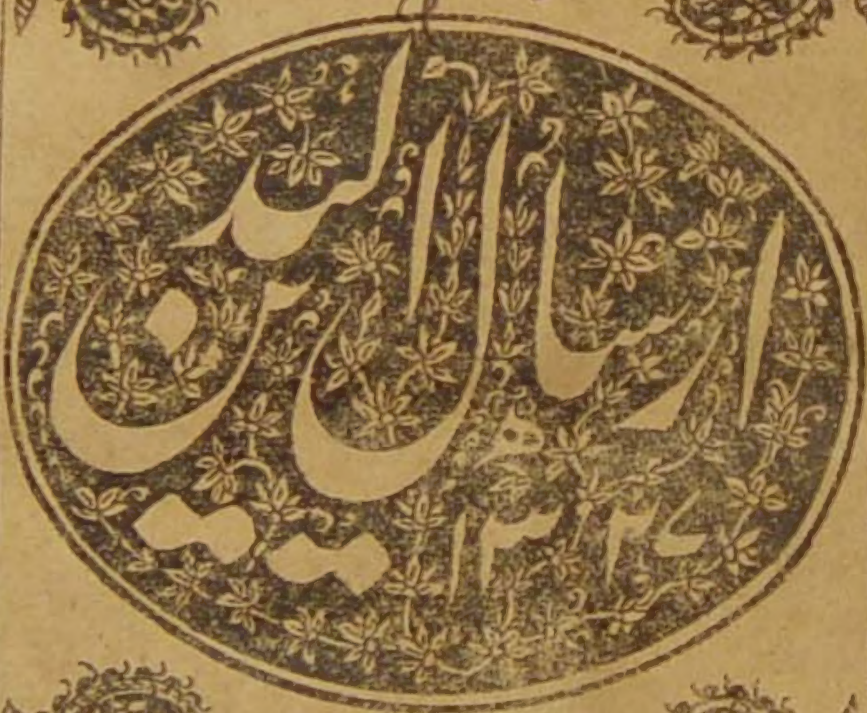 ارسال الیدین
۱۳۲۷ھ